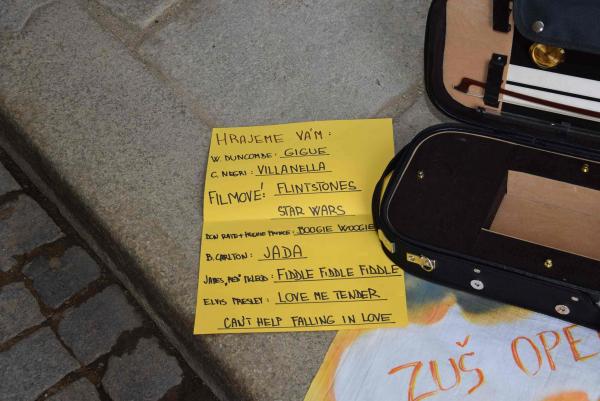 HRAJEME VÁM:
W. DUNCOMBE: GIGUE
C. NEGRI: VILLANELLA
FILMOVÉ: FLINTSTONES
STAR WARS
DON RAYE + HUGHIE PRINCE: BOOGIE WOOGIE
B. CARLTON: JADA
JAMES "RED" MCLEOD: FIDDLE FIDDLE FIDDLE
ELVIS PRESLEY: LOVE ME TENDER
CAN'T HELP FALLING IN LOVE
ZUŠ OPE